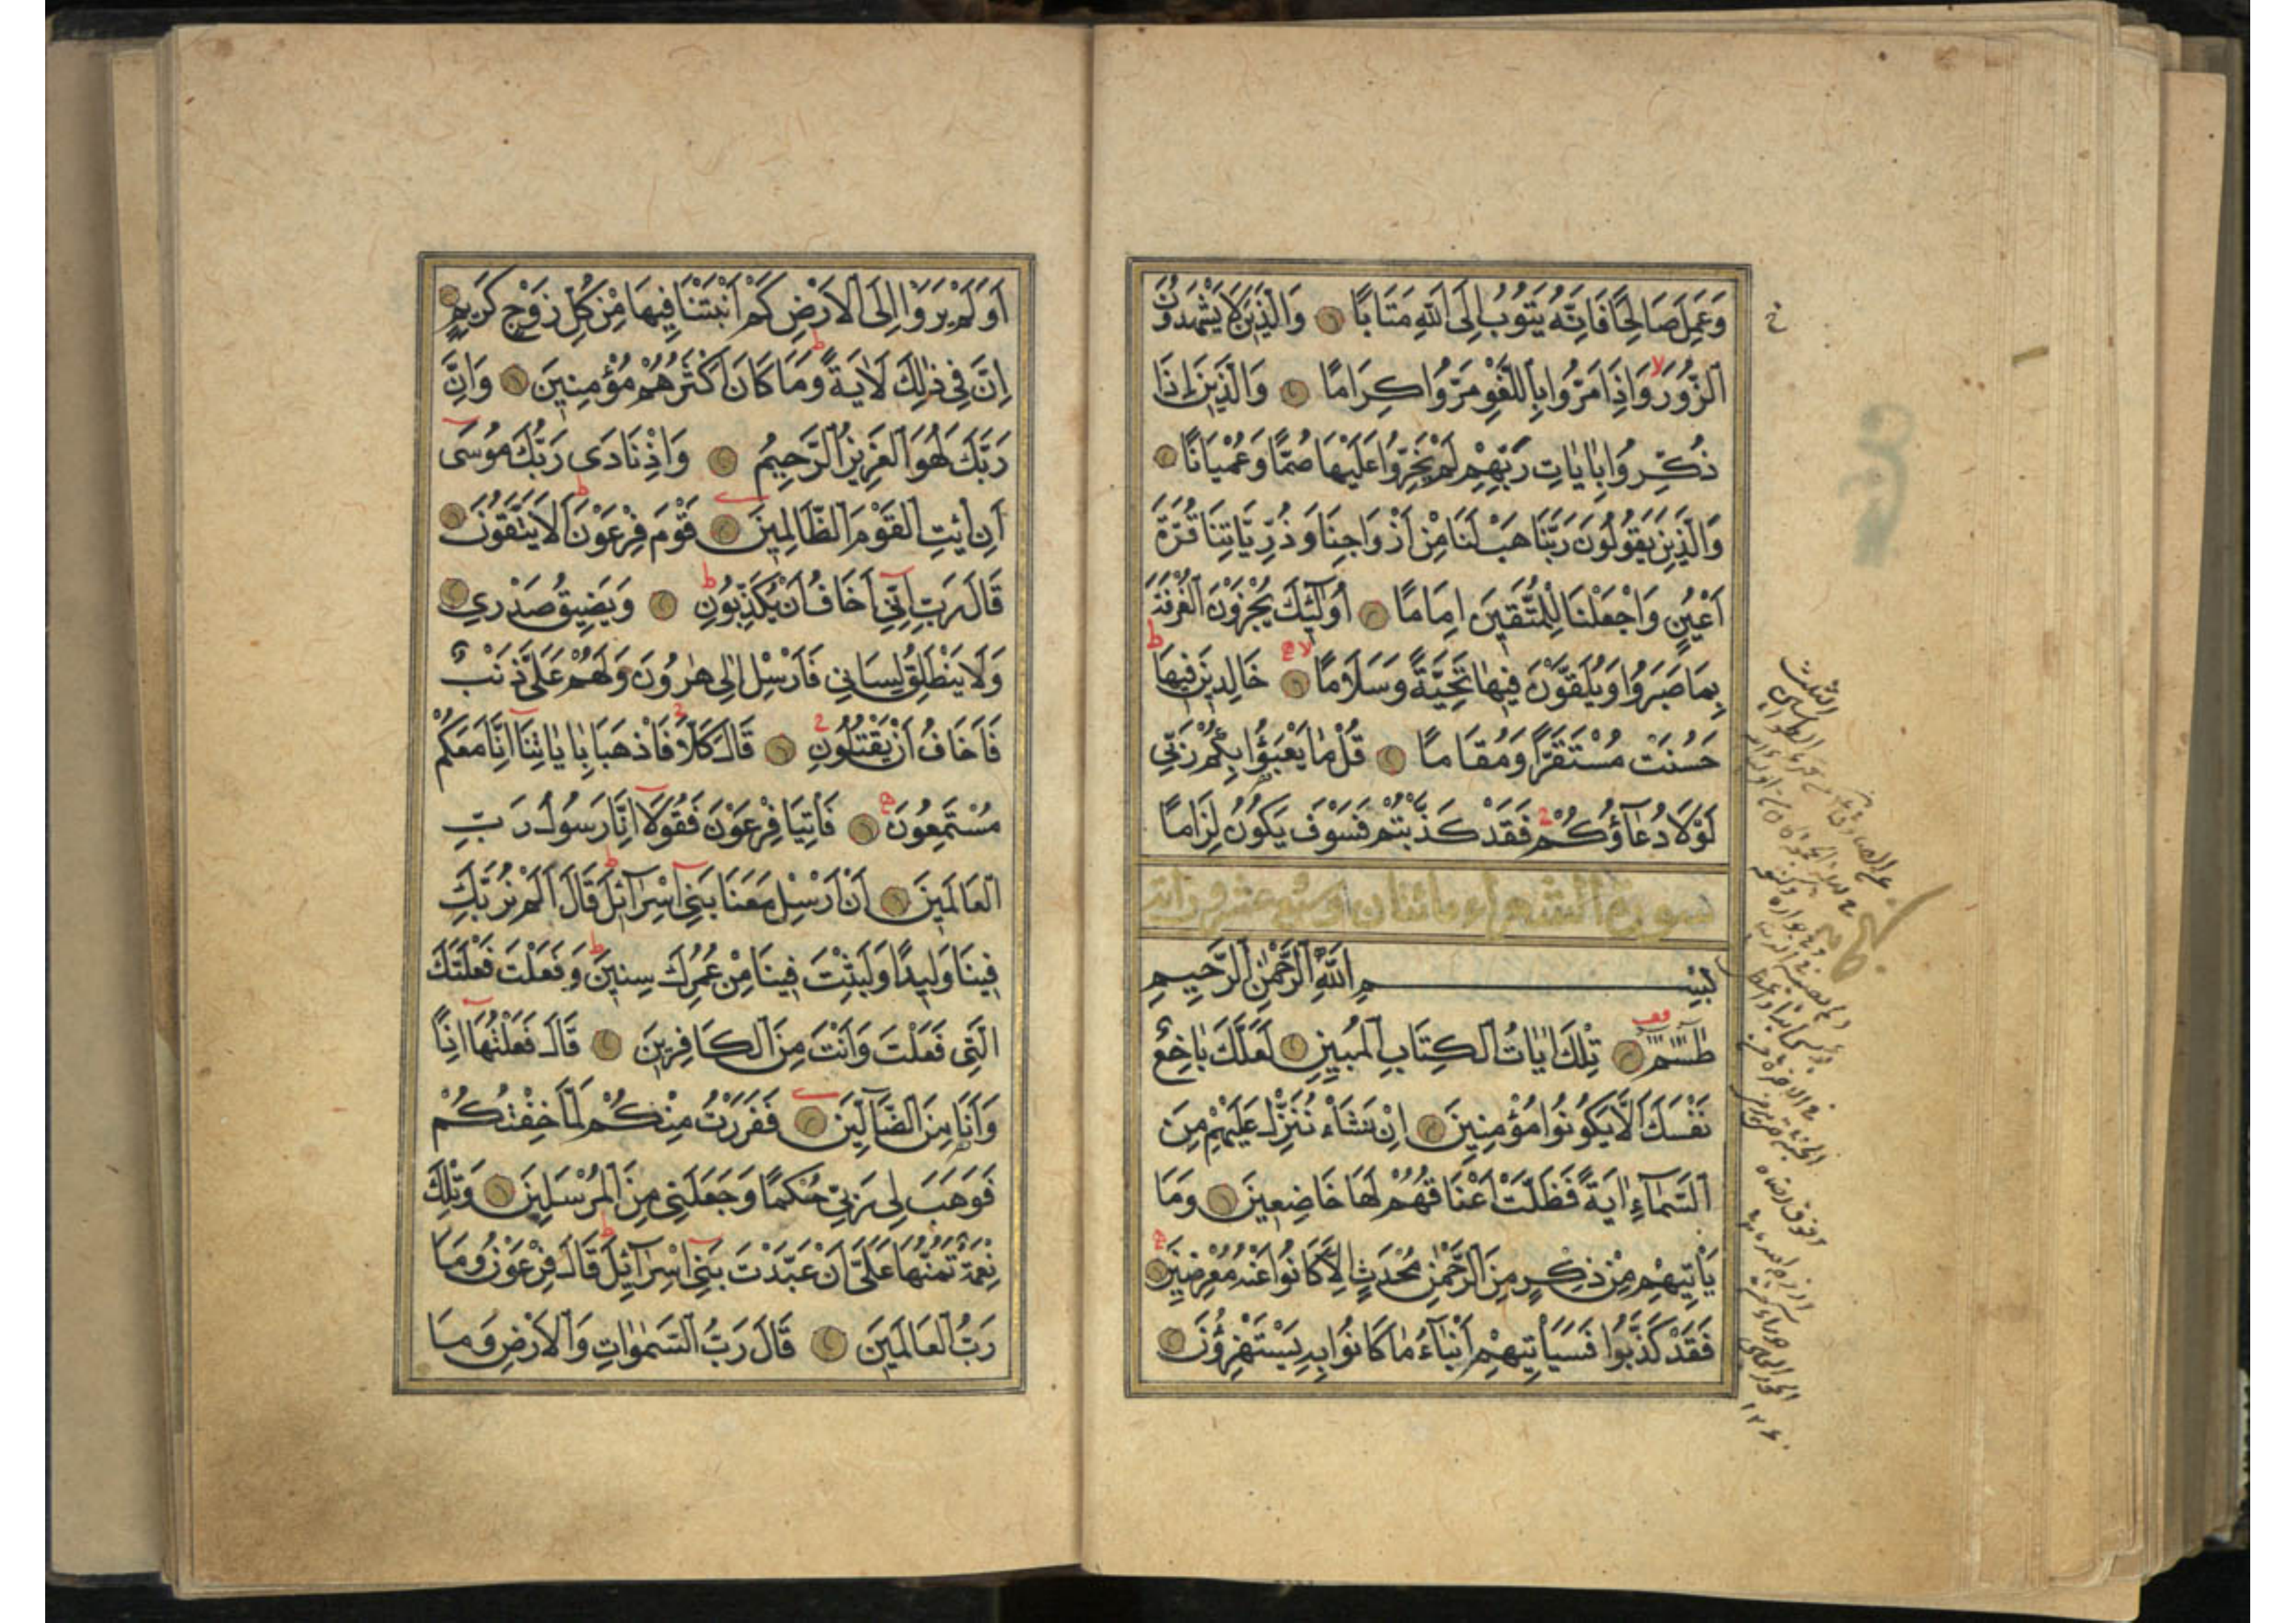 وَعَمِلَ صَالِحًا فَاِنَّهُ يَتُوبُ اِلَى اللّٰهِ مَتَابًا وَالَّذِينَ لَا يَشْهَدُونَ
الزُّورَ وَاِذَا مَرُّوا بِاللَّغْوِ مَرُّوا كِرَامًا وَالَّذِينَ اِذَا
ذُكِّرُوا بِاٰيَاتِ رَبِّهِمْ لَمْ يَخِرُّوا عَلَيْهَا صُمًّا وَعُمْيَانًا
وَالَّذِينَ يَقُولُونَ رَبَّنَا هَبْ لَنَا مِنْ اَزْوَاجِنَا وَذُرِّيَّاتِنَا قُرَّةَ
اَعْيُنٍ وَاجْعَلْنَا لِلْمُتَّقِينَ اِمَامًا اُولٰٓئِكَ يُجْزَوْنَ الْغُرْفَةَ
بِمَا صَبَرُوا وَيُلَقَّوْنَ فِيهَا تَحِيَّةً وَسَلَامًا خَالِدِينَ فِيهَا
حَسُنَتْ مُسْتَقَرًّا وَمُقَامًا قُلْ مَا يَعْبَؤُا بِكُمْ رَبِّي
لَوْلَا دُعَآؤُكُمْ فَقَدْ كَذَّبْتُمْ فَسَوْفَ يَكُونُ لِزَامًا
سورة الشعراء مائتان وسبع عشرون اية
بِسْمِ اللّٰهِ الرَّحْمٰنِ الرَّحِيمِ
طٰسٓمٓ تِلْكَ اٰيَاتُ الْكِتَابِ الْمُبِينِ لَعَلَّكَ بَاخِعٌ
نَفْسَكَ اَلَّا يَكُونُوا مُؤْمِنِينَ اِنْ نَشَاْ نُنَزِّلْ عَلَيْهِمْ مِنَ
السَّمَآءِ اٰيَةً فَظَلَّتْ اَعْنَاقُهُمْ لَهَا خَاضِعِينَ وَمَا
يَاْتِيهِمْ مِنْ ذِكْرٍ مِنَ الرَّحْمٰنِ مُحْدَثٍ اِلَّا كَانُوا عَنْهُ مُعْرِضِينَ
فَقَدْ كَذَّبُوا فَسَيَاْتِيهِمْ اَنْبَآءُ مَا كَانُوا بِهِ يَسْتَهْزِؤُنَ
اَوَلَمْ يَرَوْا اِلَى الْاَرْضِ كَمْ اَنْبَتْنَا فِيهَا مِنْ كُلِّ زَوْجٍ كَرِيمٍ
اِنَّ فِي ذٰلِكَ لَاٰيَةً وَمَا كَانَ اَكْثَرُهُمْ مُؤْمِنِينَ وَاِنَّ
رَبَّكَ لَهُوَ الْعَزِيزُ الرَّحِيمُ وَاِذْ نَادٰى رَبُّكَ مُوسٰى
اَنِ ائْتِ الْقَوْمَ الظَّالِمِينَ قَوْمَ فِرْعَوْنَ اَلَا يَتَّقُونَ
قَالَ رَبِّ اِنِّي اَخَافُ اَنْ يُكَذِّبُونِ وَيَضِيقُ صَدْرِي
وَلَا يَنْطَلِقُ لِسَانِي فَاَرْسِلْ اِلٰى هٰرُونَ وَلَهُمْ عَلَيَّ ذَنْبٌ
فَاَخَافُ اَنْ يَقْتُلُونِ قَالَ كَلَّا فَاذْهَبَا بِاٰيَاتِنَا اِنَّا مَعَكُمْ
مُسْتَمِعُونَ فَاْتِيَا فِرْعَوْنَ فَقُولَا اِنَّا رَسُولُ رَبِّ
الْعَالَمِينَ اَنْ اَرْسِلْ مَعَنَا بَنِي اِسْرَآئِلَ قَالَ اَلَمْ نُرَبِّكَ
فِينَا وَلِيدًا وَلَبِثْتَ فِينَا مِنْ عُمُرِكَ سِنِينَ وَفَعَلْتَ فَعْلَتَكَ
الَّتِي فَعَلْتَ وَاَنْتَ مِنَ الْكَافِرِينَ قَالَ فَعَلْتُهَا اِذًا
وَاَنَا مِنَ الضَّآلِّينَ فَفَرَرْتُ مِنْكُمْ لَمَّا خِفْتُكُمْ
فَوَهَبَ لِي رَبِّي حُكْمًا وَجَعَلَنِي مِنَ الْمُرْسَلِينَ وَتِلْكَ
نِعْمَةٌ تَمُنُّهَا عَلَيَّ اَنْ عَبَّدْتَ بَنِي اِسْرَآئِلَ قَالَ فِرْعَوْنُ وَمَا
رَبُّ الْعَالَمِينَ قَالَ رَبُّ السَّمٰوَاتِ وَالْاَرْضِ وَمَا